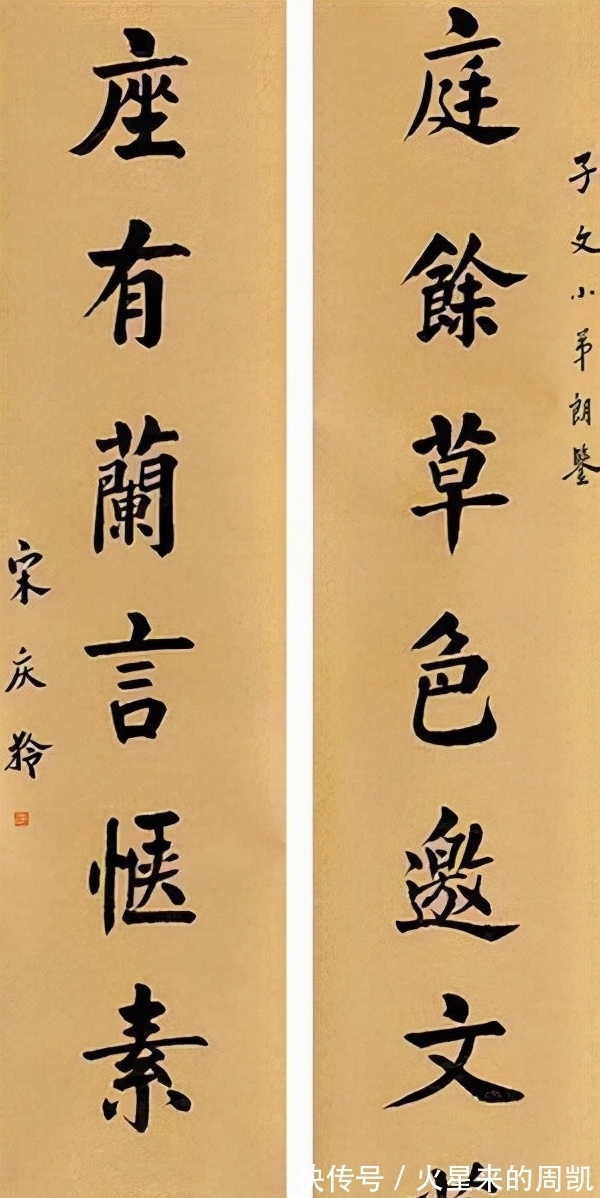 子文小弟朗鑒
庭餘草色邀文
座有蘭言愜素
宋庆龄
快传号 / 火星来的周凯